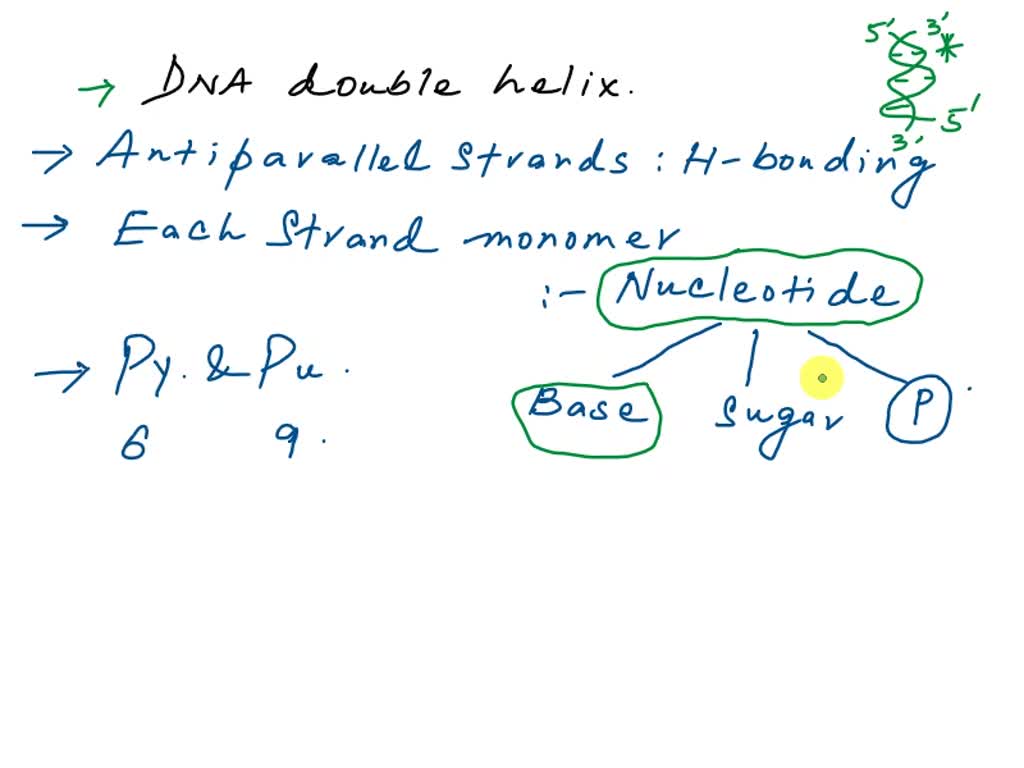 5' 3' *
→ DNA double helix.
5'
3'
→ Antiparallel strands : H-bonding
→ Each Strand monomer
:- Nucleotide
→ Py. & Pu.
Base Sugar P
6 9.